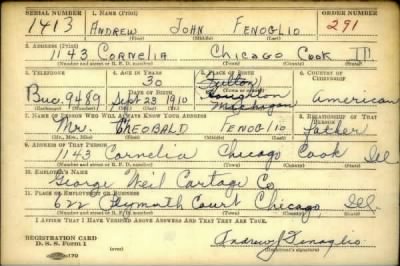 SERIAL NUMBER 1. NAME (Print) ORDER NUMBER
1413 ANDREW JOHN FENOGLIO 291
(First) (Middle) (Last)
2. ADDRESS (Print)
1143 CORNELIA CHICAGO COOK Ill
(Number and street or R. F. D. number) (Town) (County) (State)
3. TELEPHONE 4. AGE IN YEARS 5. PLACE OF BIRTH 6. COUNTRY OF CITIZENSHIP
30 Fulton
DATE OF BIRTH
Buc. 9480 Sept 23 1910 Michigan American
7. NAME OF PERSON WHO WILL ALWAYS KNOW YOUR ADDRESS 8. RELATIONSHIP OF THAT PERSON
Mr. THEOBALD FENOGLIO Father
(Mr., Mrs., Miss) (First) (Middle) (Last)
9. ADDRESS OF THAT PERSON
1143 Cornelia Chicago Cook Ill
(Number and street or R. F. D. number) (Town) (County) (State)
10. EMPLOYER'S NAME
George Neil Cartage Co
11. PLACE OF EMPLOYMENT OR BUSINESS
622 Plymouth Court Chicago, Ill.
(Number and street or R. F. D. number) (Town) (County) (State)
I AFFIRM THAT I HAVE VERIFIED ABOVE ANSWERS AND THAT THEY ARE TRUE.
REGISTRATION CARD
D. S. S. Form 1 Andrew J Fenoglio
(Registrant's signature)